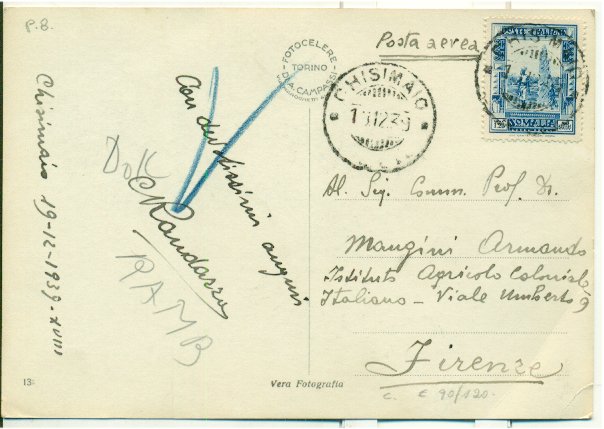 P.B.
Posta aerea
FOTOCELERE
TORINO
DI A. CAMPASSI
CHISIMAIO
12.39
CHISIMAIO
POSTE ITALIANE
SOMALIA
Chisimaio 19-12-1939-XVIII
Con devotissimi auguri
Dott
RAMB
Al Sig. Comm. Prof. Dr.
Mangini Armando
Istituto Agricolo Coloniale
Italiano - Viale Umberto 9
Firenze
c. € 90/120.-
13
Vera Fotografia